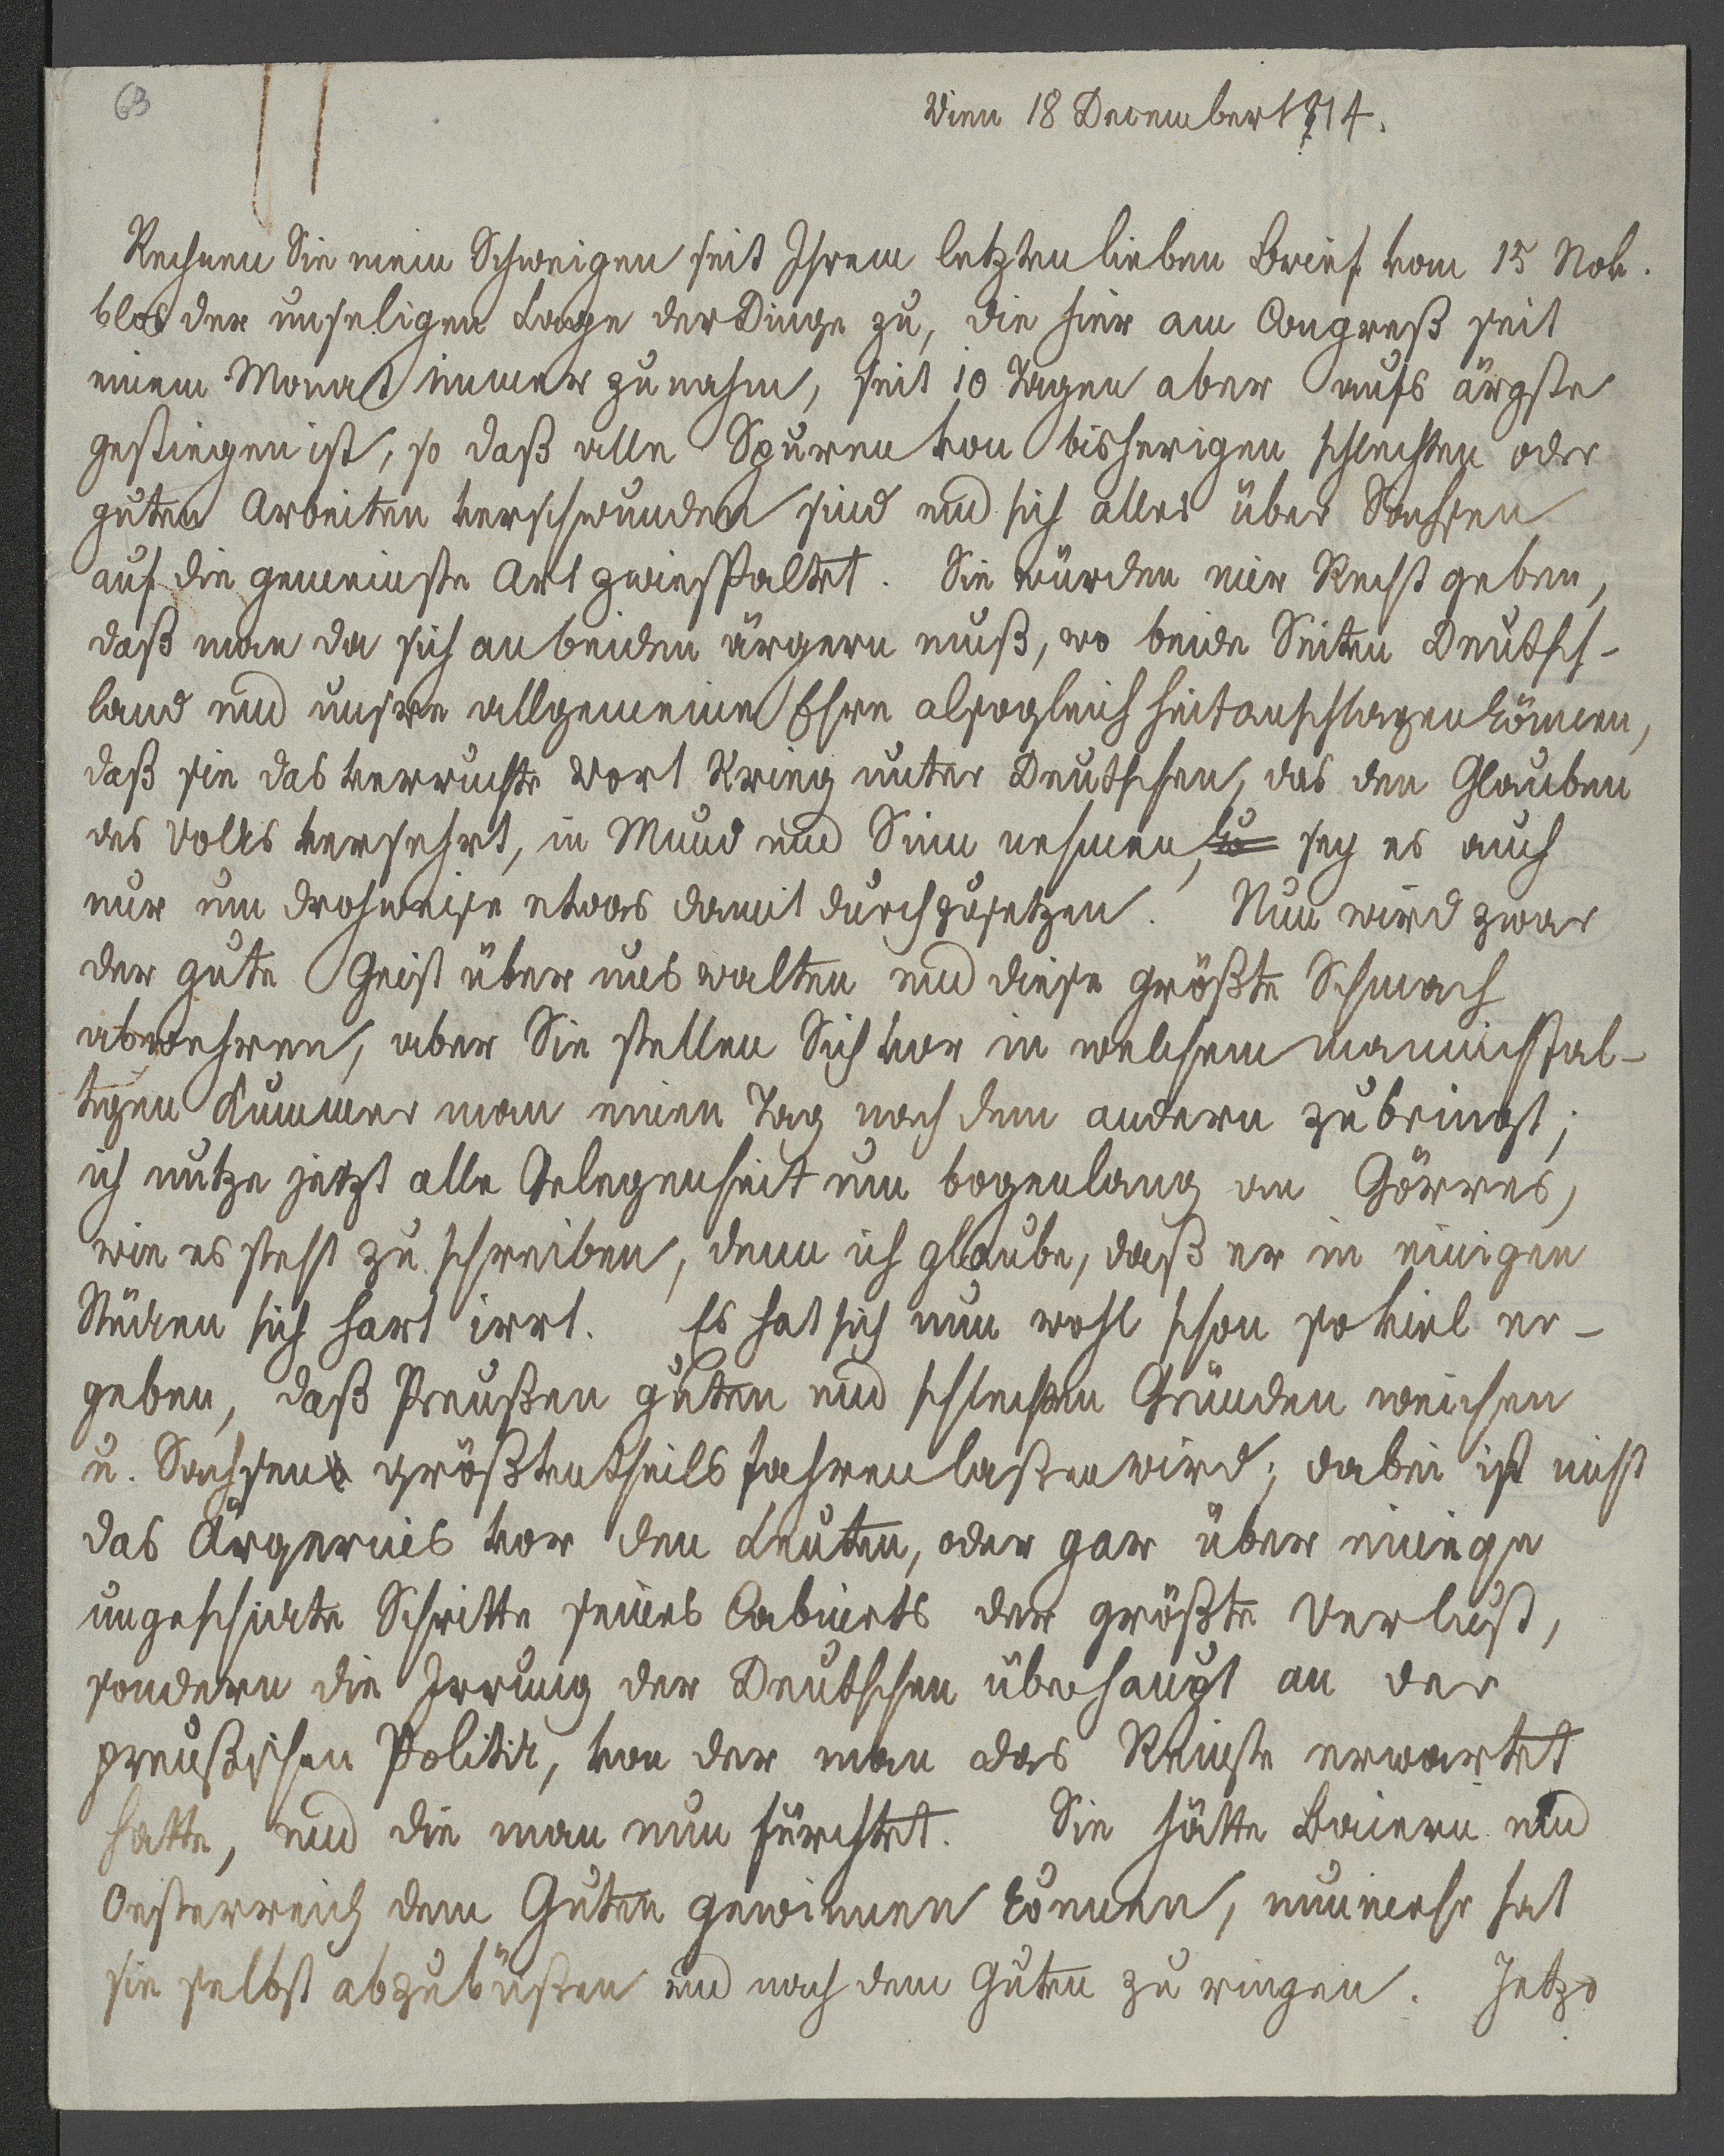 63
Wien 18 December 1814.
Rechnen Sie mein Schweigen seit Ihrem letzten lieben Brief vom 15 Nov.
blos der unseligen Lage der Dinge zu, die hier am Congreß seit
einem Monat immer zunahm, seit 10 Tagen aber aufs ärgste
gestiegen ist, so daß alle Spuren von bisherigen schlechten oder
guten Arbeiten verschwunden sind und sich alles über Sachsen
auf die gemeinste Art zwiespaltet. Sie würden mir Recht geben,
daß man da sich an beiden ärgern muß, wo beide Seiten Deutsch-
land und unsre allgemeine Ehre alsogleich hintanschlagen können,
daß sie das verruchte Wort Krieg unter Deutschen, das den Glauben
des Volks versehrt, in Mund und Sinn nehmen, sey es auch
nur um drohweise etwas damit durchzusetzen. Nun wird zwar
der gute Geist über uns walten und diese größte Schmach
abwehren, aber Sie stellen Sich vor in welchem mannichfal-
tigen Kummer man einen Tag nach dem andern zubringt;
ich nutze jetzt alle Gelegenheit um bogenlang an Görres,
wie es steht zu schreiben, denn ich glaube, daß er in einigen
Stücken sich hart irrt. Es hat sich nun wohl schon so viel er-
geben, daß Preußen guten und schlechten Gründen weichen
u. Sachsen größtentheils fahren laßen wird; dabei ist nicht
das Ärgernis vor den Leuten, oder gar über einige
ungeschickte Schritte seines Cabinets der größte Verlust,
sondern die Irrung der Deutschen überhaupt an der
preußischen Politik, von der man das Reinste erwartet
hatte, und die man nun fürchtet. Sie hätte Baiern und
Oesterreich dem Guten gewinnen können, nunmehr hat
sie selbst abzubüßen und nach dem Guten zu ringen. Jetzo